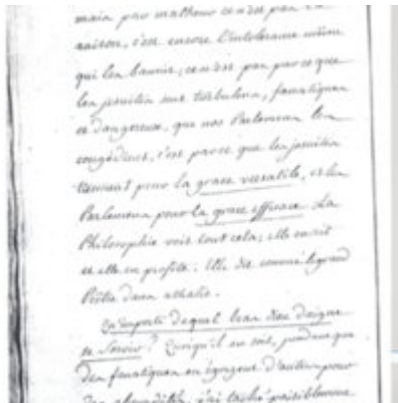 main par malheur ce n'est pas la
raison, c'est encore l'intolerance même
qui les bannit; ce n'est pas parce que
les jesuites sont turbulens, fanatiques
et dangereux, que nos Parlemens les
congédient, c'est parce que les jesuites
tiennent pour la grace versatile, et les
Parlemens pour la grace efficace. La
Philosophie voit tout cela; elle en rit
et elle en profite. Elle dit comme le grand
Prêtre dans athalie.
Qu'importe de quel bras dieu daigne
se servir? Quoiqu'il en soit, pendant que
des fanatiques en égorgent d'autres pour
des absurdités, j'ai taché paisiblement